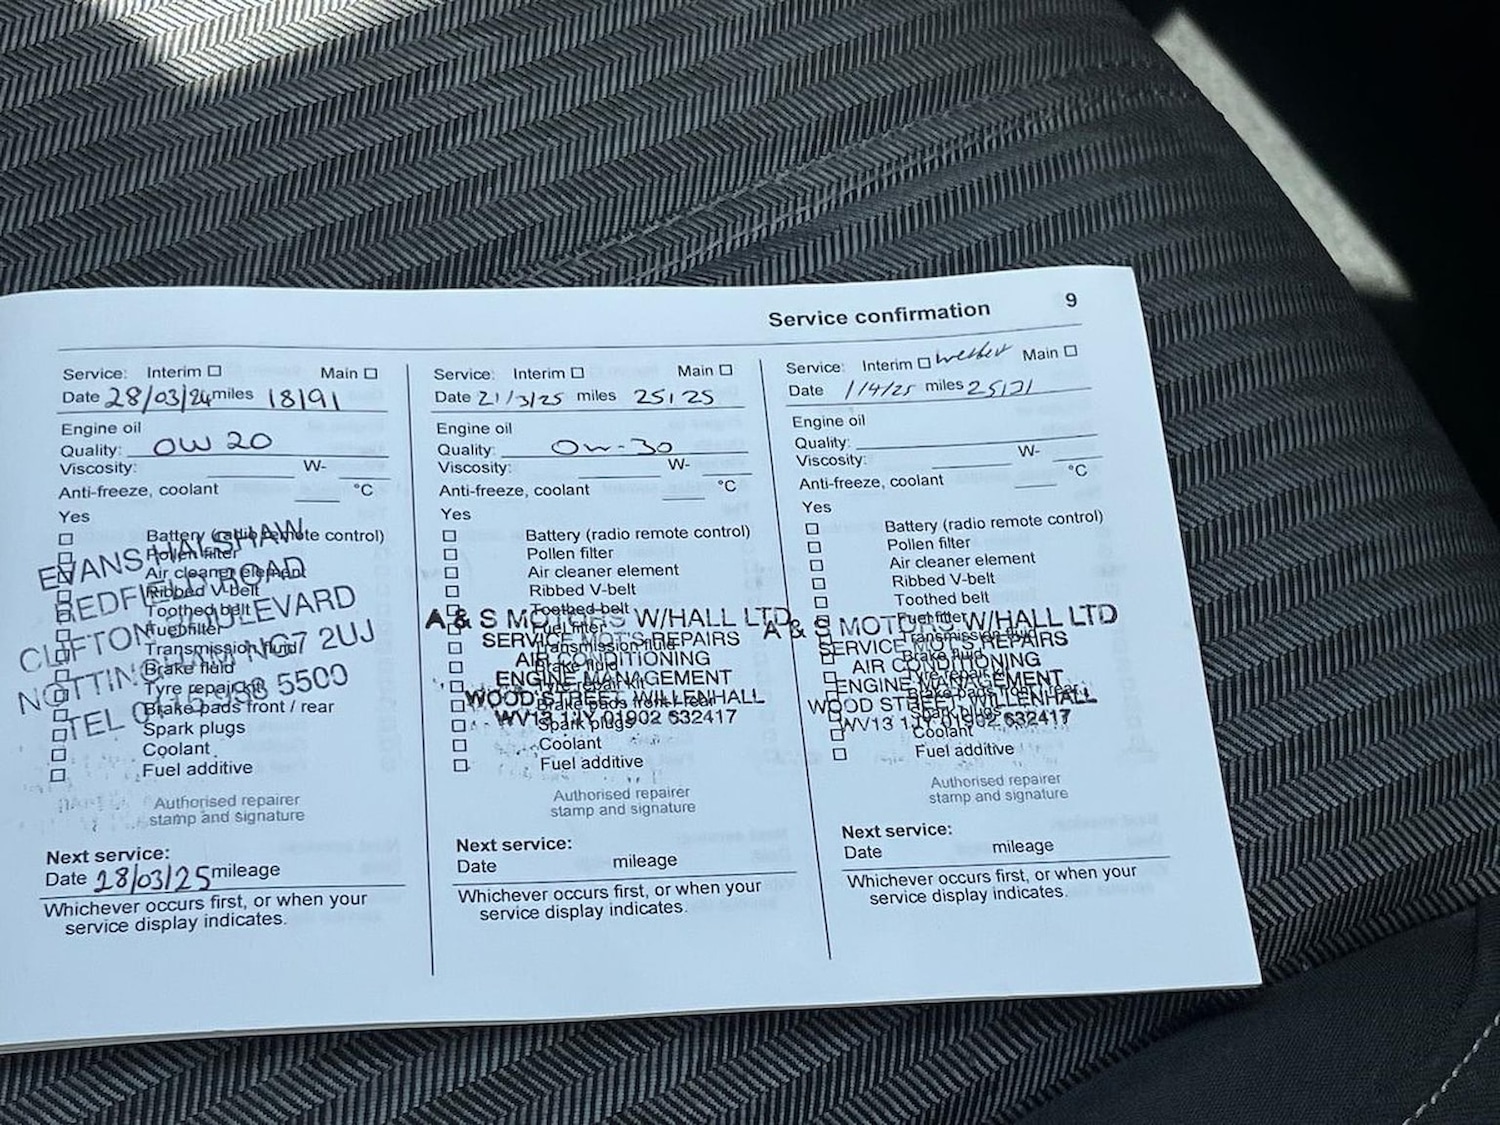 Service confirmation 9
Service: Interim Main
Date 28/03/24 miles 18191
Engine oil
Quality: OW 20
Viscosity: W-
Anti-freeze, coolant °C
Yes
Battery (radio remote control)
Pollen filter
Air cleaner element
Ribbed V-belt
Toothed belt
Fuel filter
Transmission fluid
Brake fluid
Tyre repair kit
Brake pads front / rear
Spark plugs
Coolant
Fuel additive
EVANS HALSHAW
REDFIELD ROAD
CLIFTON BOULEVARD
NOTTINGHAM NG7 2UJ
TEL 5500
Authorised repairer
stamp and signature
Next service:
Date 28/03/25 mileage
Whichever occurs first, or when your
service display indicates.
Service: Interim Main
Date 21/3/25 miles 25125
Engine oil
Quality: OW-30
Viscosity: W-
Anti-freeze, coolant °C
Yes
Battery (radio remote control)
Pollen filter
Air cleaner element
Ribbed V-belt
Toothed belt
Fuel filter
Transmission fluid
Brake fluid
Tyre repair kit
Brake pads front / rear
Spark plugs
Coolant
Fuel additive
A & S MOTORS W/HALL LTD
SERVICE MOT'S REPAIRS
AIR CONDITIONING
ENGINE MANAGEMENT
WOOD STREET, WILLENHALL
WV13 1JY 01902 632417
Authorised repairer
stamp and signature
Next service:
Date mileage
Whichever occurs first, or when your
service display indicates.
Service: Interim Main
Date 1/4/25 miles
Engine oil
Quality:
Viscosity: W-
Anti-freeze, coolant °C
Yes
Battery (radio remote control)
Pollen filter
Air cleaner element
Ribbed V-belt
Toothed belt
Fuel filter
Transmission fluid
Brake fluid
Tyre repair kit
Brake pads front / rear
Spark plugs
Coolant
Fuel additive
A & S MOTORS W/HALL LTD
SERVICE MOT'S REPAIRS
AIR CONDITIONING
ENGINE MANAGEMENT
WOOD STREET, WILLENHALL
WV13 1JY 01902 632417
Authorised repairer
stamp and signature
Next service:
Date mileage
Whichever occurs first, or when your
service display indicates.